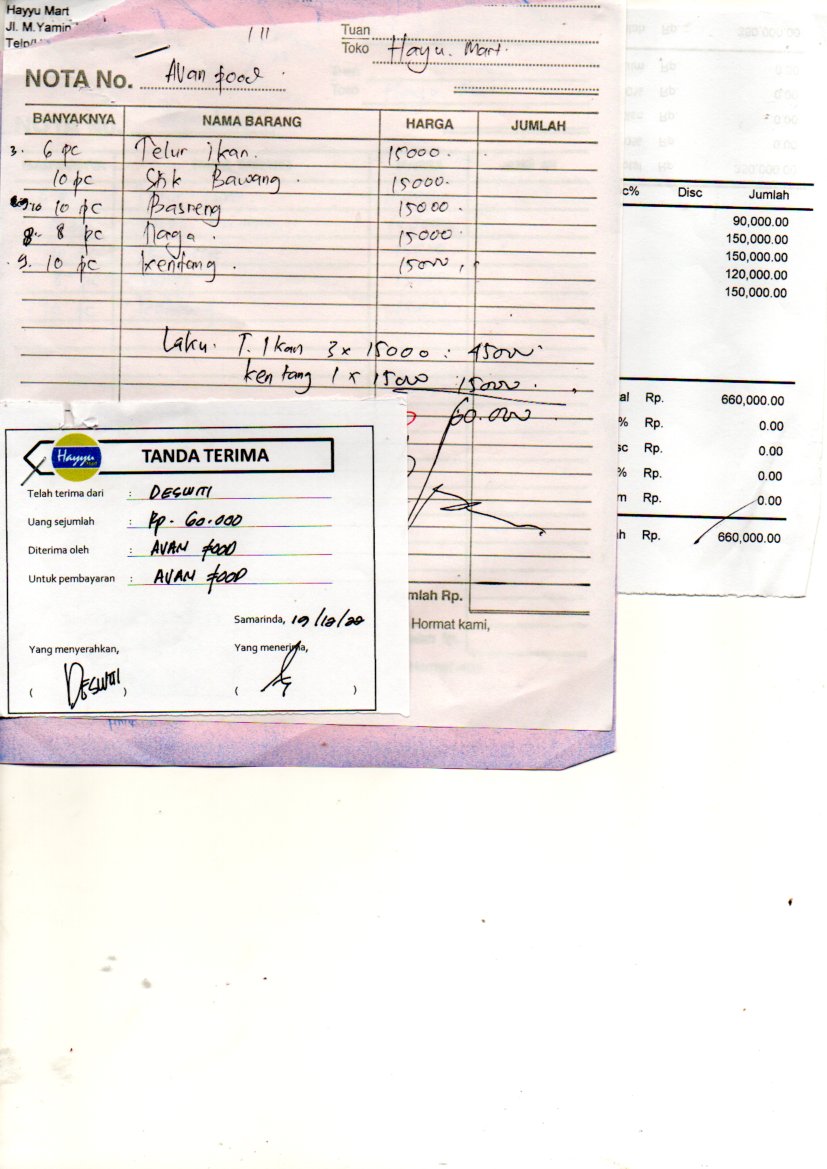 Hayyu Mart
Jl. M.Yamin
Telp/
1 11
Tuan
Toko Hayu. Mart.
NOTA No. AVan food.
BANYAKNYA NAMA BARANG HARGA JUMLAH
3. 6 pc Telur ikan. 15000.
10 pc Stik Bawang. 15000.
10 10 pc Basreng 15000.
8. 8 pc Naga. 15000.
9. 10 pc kentang. 15000,
Laku. T. Ikan 3 x 15000 : 45000
kentang 1 x 15000 15000.
60.000
mlah Rp.
Hormat kami,
Hayyu
TANDA TERIMA
Telah terima dari : DESWITI
Uang sejumlah : Rp. 60.000
Diterima oleh : AVAN FOOD
Untuk pembayaran : AVAN FOOD
Samarinda, 19/12/22
Yang menyerahkan, Yang menerima,
DESWITI
( ) ( )
c% Disc Jumlah
90,000.00
150,000.00
150,000.00
120,000.00
150,000.00
al Rp. 660,000.00
% Rp. 0.00
sc Rp. 0.00
% Rp. 0.00
m Rp. 0.00
h Rp. 660,000.00